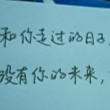 和你走过的日子
没有你的未来，